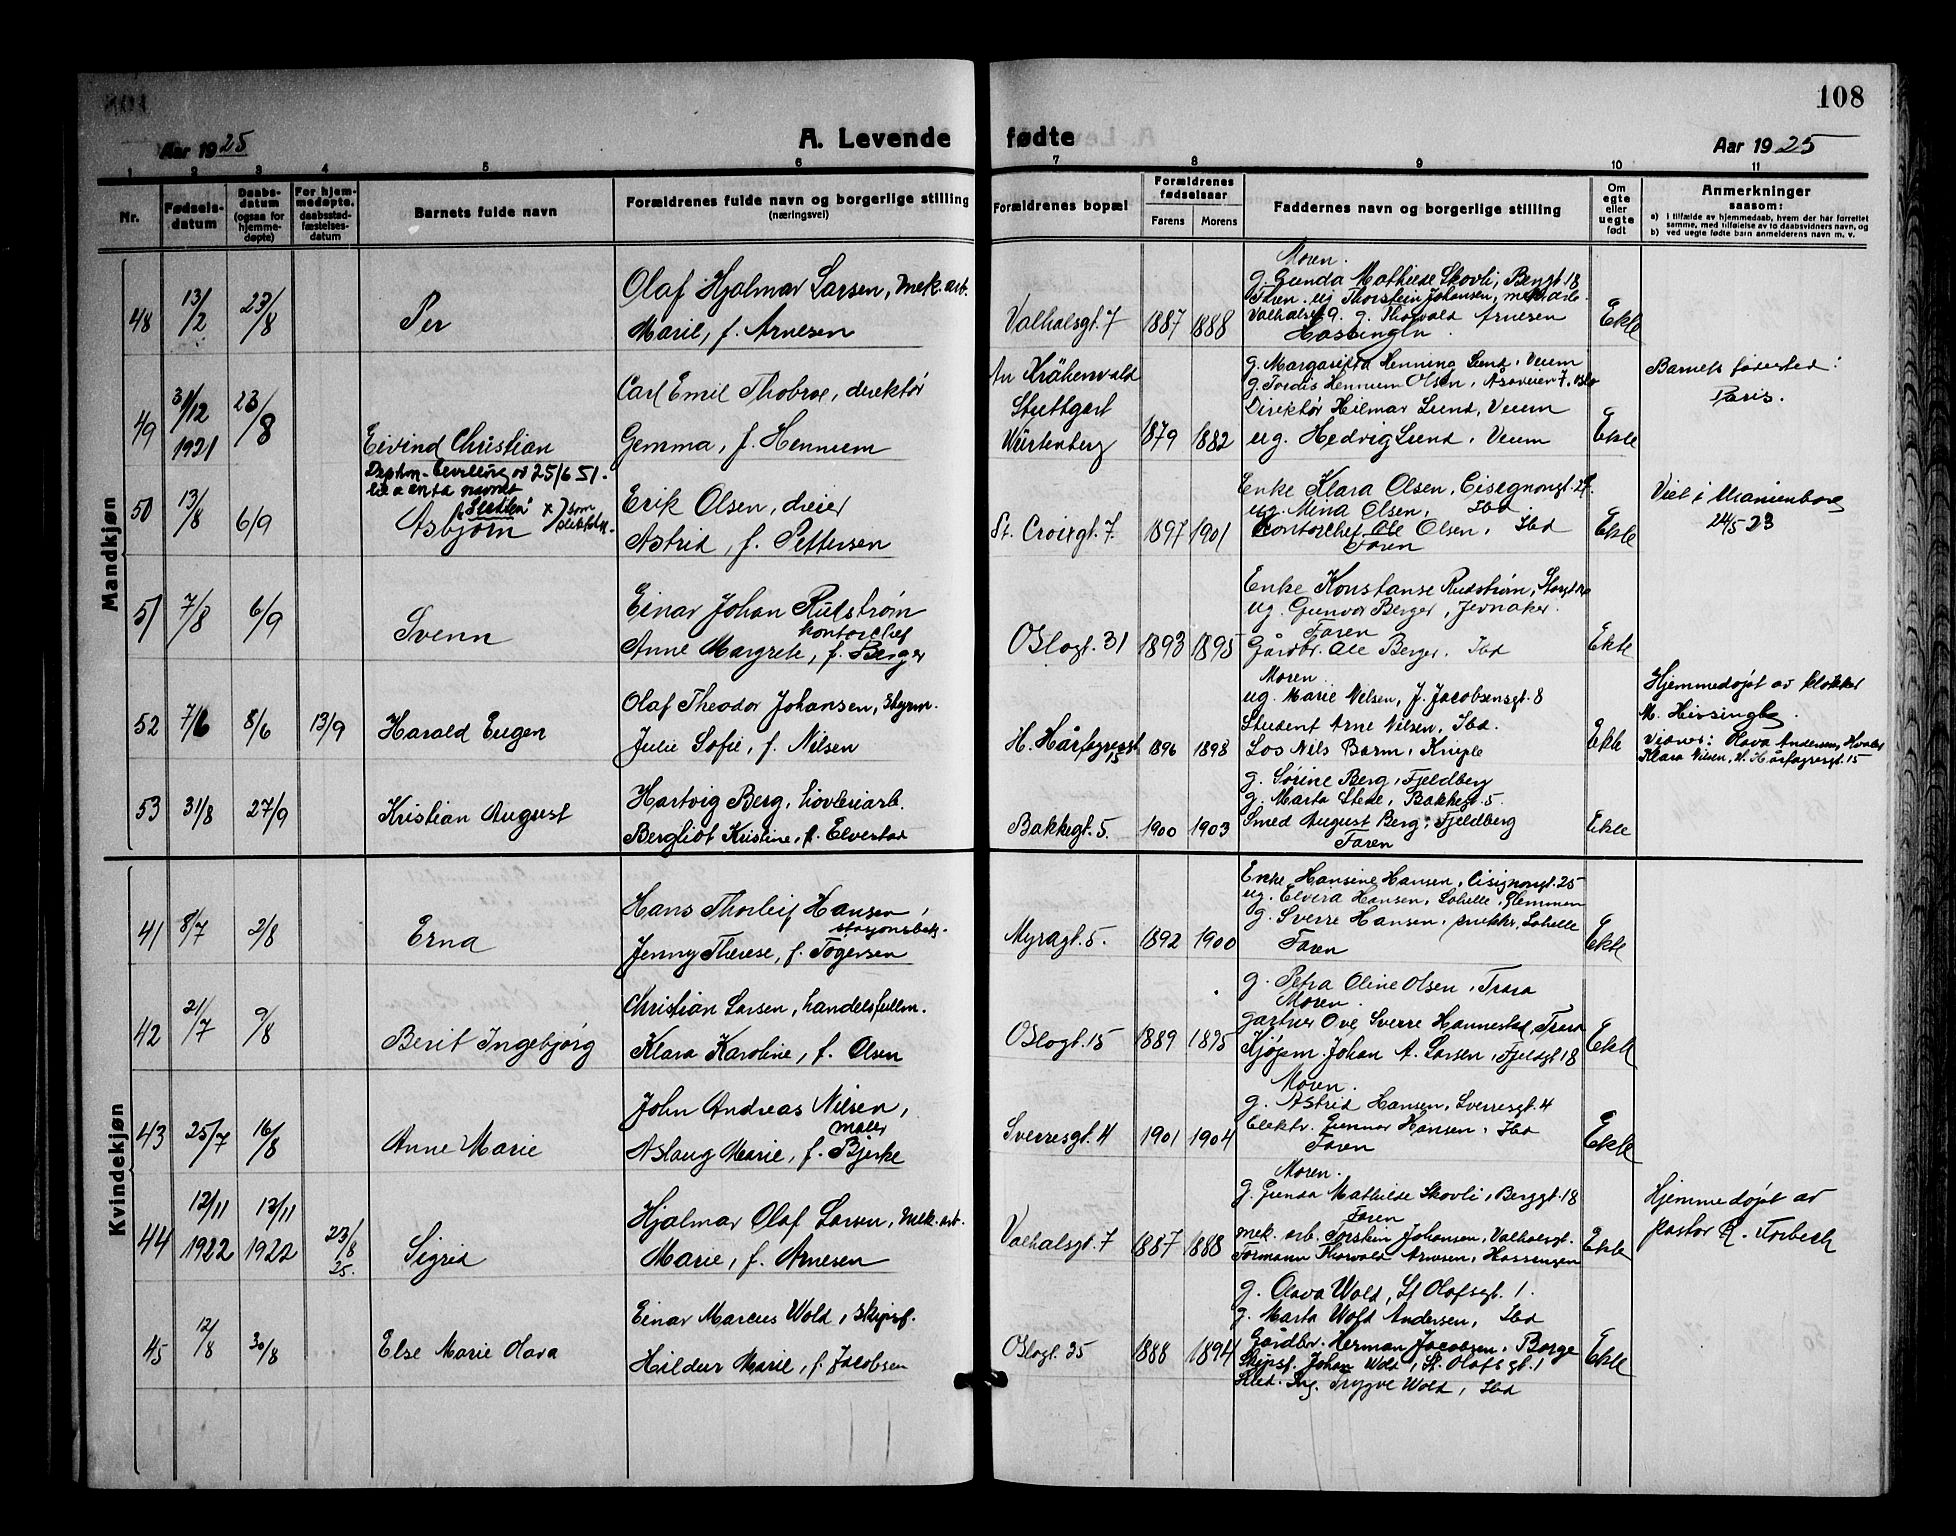 108
Aar 1925
A. Levende fødte
Aar 1925
1 2 3 4 5 6 7 8 9 10 11
Nr.
Fødsels-
datum
Daabs-
datum
(ogsaa for
hjemme-
døpte)
For hjem-
medøpte,
daabsstad-
fæstelses-
datum
Barnets fulde navn
Forældrenes fulde navn og borgerlige stilling
(næringsvei)
Forældrenes bopæl
Forældrenes
fødselsaar
Farens
Morens
Faddernes navn og borgerlige stilling
Om
egte
eller
uegte
født
Anmerkninger
saasom:
a) I tilfælde av hjemmedaab, hvem der har forrettet
samme, med tilføielse av to daabsvidners navn, og
b) ved uegte fødte barn anmelderens navn m. v.
Mandkjøn
48 13/2 23/8
Per
Olaf Hjalmar Larsen, Mek. arb.
Marie, f. Arnesen
Valhalsgt. 7
1887 1888
Moren.
g. Gunda Mathilde Skovli, Berggt 18
Faren. ug Thorstein Johansen, mek. arb.
Valhalsgt 9. g. Thorvald Arnesen
Ekte
49 31/12 1921 23/8
Eivind Christian
Carl Emil Thobroe, direktør
Gemma, f. Hennum
An Krähenwald
Stuttgart
Würtenberg
1879 1882
g. Margaretha Henning Lund, Veum
g. Tordis Hennum Olsen, Aasveien 7, Oslo
Direktør Hilmar Lund, Veum
ug. Hedvig Lund, Veum
Ekte
Barnets fødested:
Paris.
50 13/8 6/9
25/6 51.
navnet
x) som
Asbjørn
Erik Olsen, dreier
Astrid, f. Pettersen
St. Croixgt. 7.
1897 1901
Enke Klara Olsen, Cisignongt. 27.
ug. Mina Olsen, Ibd
Kontorchef Ole Olsen, Ibd
Faren
Ekte
Viet i Marienborg
24/5 23
51 7/8 6/9
Svenn
Einar Johan Rudstrøm
kontorchef
Anne Margrete, f. Berger
Oslogt. 31
1893 1895
Enke Konstanse Rudstrøm,
ug. Gunvor Berger, Jevnaker.
Faren
Gårdbr. Ole Berger. Ibd
Ekte
52 7/6 8/6 13/9
Harald Eugen
Olaf Theodor Johansen, Styrm.
Julie Sofie, f. Nilsen
H. Hårfagresgt 15
1896 1898
Moren.
ug. Marie Nilsen, J. Jacobsensgt. 8
Student Arne Nilsen, Ibd.
Los Nils Barm, Kniple
Ekte
Hjemmedøpt av klokker
M.
Vidner: Olava Andersen, Hvaler
Klara Nilsen, H. Hårfagresgt. 15
53 31/8 27/9
Kristian August
Hartvig Berg, høvleriarb.
Bergliot Kristine, f. Elvestad
Bakkegt. 5.
1900 1903
g. Sørine Berg, Fjeldberg
g. Marta Stede, Bakkegt. 5.
Smed August Berg, Fjeldberg
Faren
Ekte
Kvindekjøn
41 8/7 2/8
Erna
Hans Thorleif Hansen,
stasjonsbetj.
Jenny Therese, f. Togersen
Myragt. 5.
1892 1900
Enke Hansine Hansen, Cisignongt. 25
ug. Elvira Hansen, Labelle, Glemmen
g. Sverre Hansen, snekkr, Labelle
Faren
Ekte
42 21/7 9/8
Berit Ingebjørg
Christian Larsen, handelsfullm.
Klara Karoline, f. Olsen
Oslogt. 15
1889 1895
g. Petra Oline Olsen, Trara
Moren.
gartner Ove Sverre Hannestad, Trara
Kjøpm. Johan A. Larsen, Fjeldgt. 18
Ekte
43 25/7 16/8
Anne Marie
John Andreas Nilsen,
maler
Aslaug Marie, f. Bjerke
Sverresgt. 4
1901 1904
Moren.
g. Astrid Hansen, Sverresgt. 4
Elektr. Gunnar Hansen, Ibd
Faren
Ekte
44 12/11 1922 13/11 1922 23/8 25.
Sigrid
Hjalmar Olaf Larsen, Mek. arb.
Marie, f. Arnesen
Valhalsgt. 7
1887 1888
Moren.
g. Gunda Mathilde Skovli, Berggt. 18
Faren
mek. arb. Torstein Johansen, Valhalsgt.
Formann Thorvald Arnesen, Hassingen
Ekte
Hjemmedøpt av
pastor R. Torbech
45 12/8 30/8
Else Marie Olava
Einar Marcus Wold, skipsf.
Hildur Marie, f. Jacobsen
Oslogt. 25
1888 1894
g. Olava Wold, St Olafsgt. 1.
g. Marta Wold Andersen, Ibd
Gårdbr. Herman Jacobsen, Borge
Skipsf. Johan Wold, St. Olafsgt. 1
Stud. Ing. Trygve Wold, Ibd
Ekte